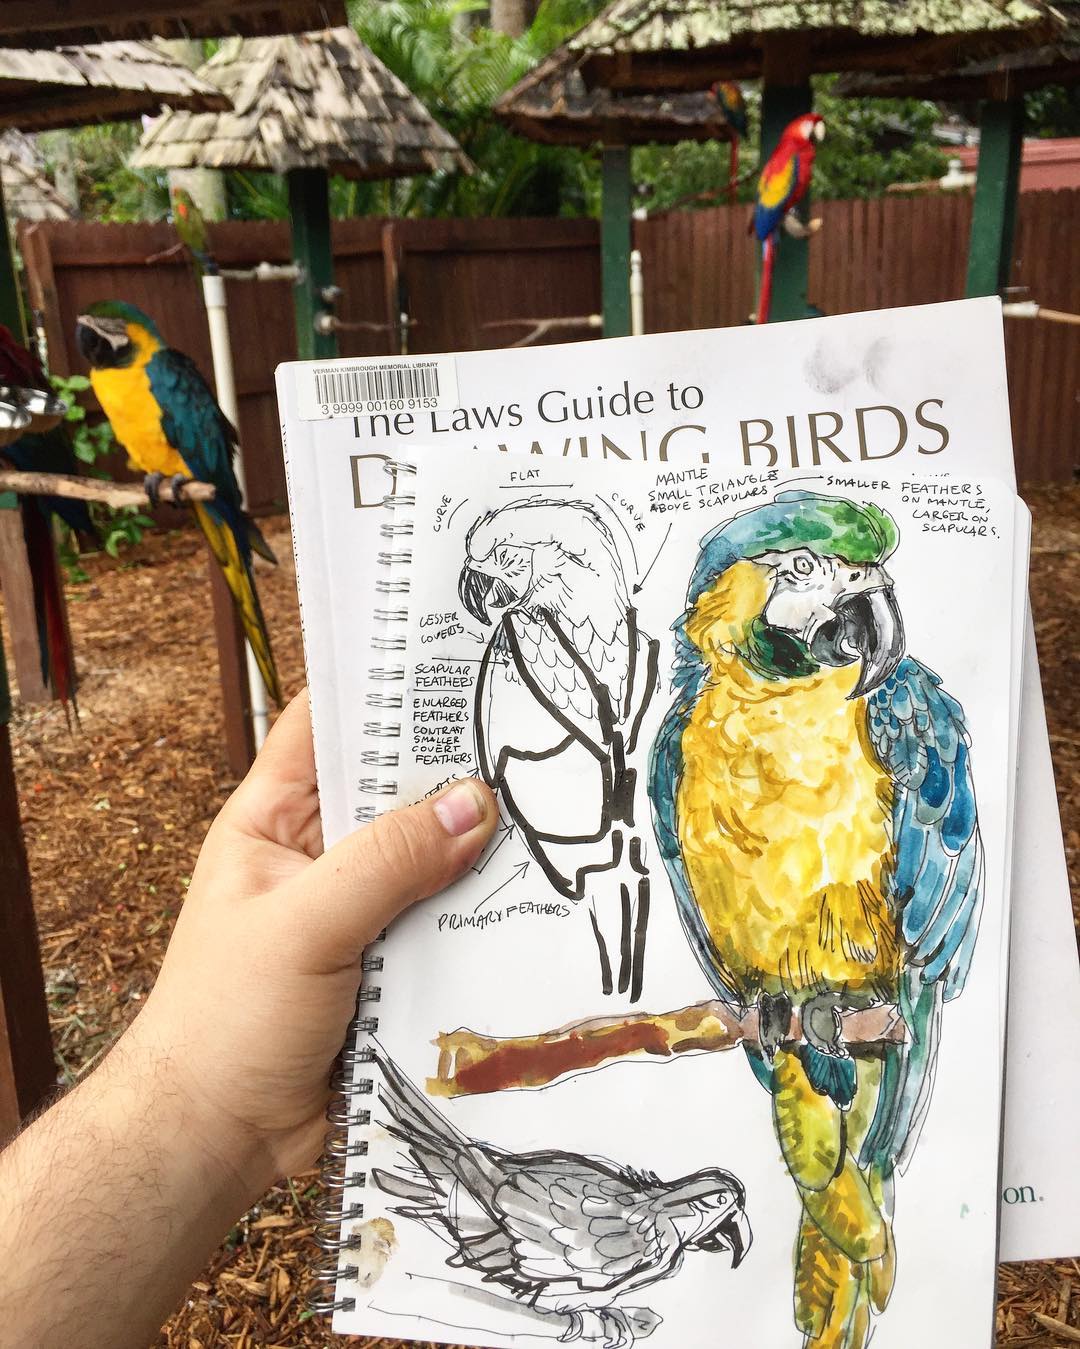 VERMAN KIMBROUGH MEMORIAL LIBRARY
3 9999 00160 9153
The Laws Guide to
DRAWING BIRDS
FLAT
CURVE
CURVE
MANTLE
SMALL TRIANGLE
ABOVE SCAPULARS
SMALLER FEATHERS
ON MANTLE,
LARGER ON
SCAPULARS.
LESSER
COVERTS
SCAPULAR
FEATHERS
ENLARGED
FEATHERS
CONTRAST
SMALLER
COVERT
FEATHERS
PRIMARY FEATHERS
on.